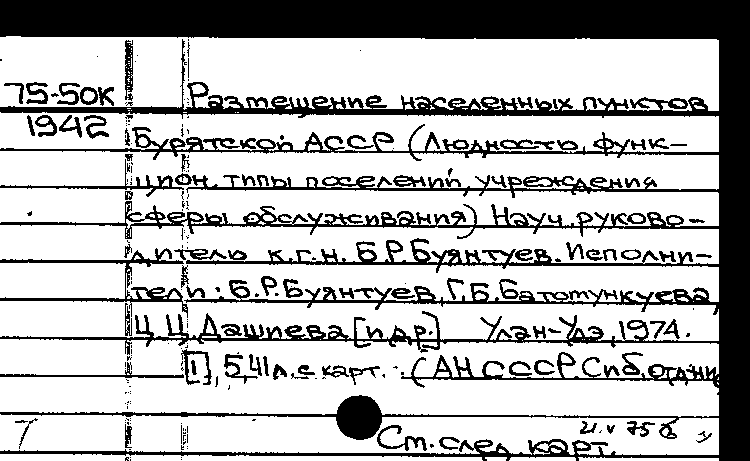 75-50К Размещение населенных пунктов
1942 Бурятской АССР (Людность, функ-
цион. типы поселений, учреждения
сферы обслуживания) Науч. руково-
дитель к.г.н. Б.Р.Буянтуев. Исполни-
тели: Б.Р.Буянтуев, Г.Б.Батотункуева,
Ц.Ц.Дашиева [и др.]. Улан-Удэ, 1974.
[1], 5, 41 л. с карт. (АН СССР. Сиб. отд-ние
См. след. карт.